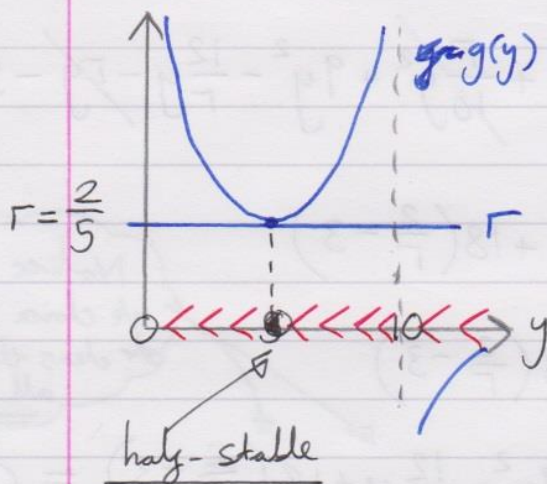 g(y)
r = 2/5
r
0 5 10 y
half-stable